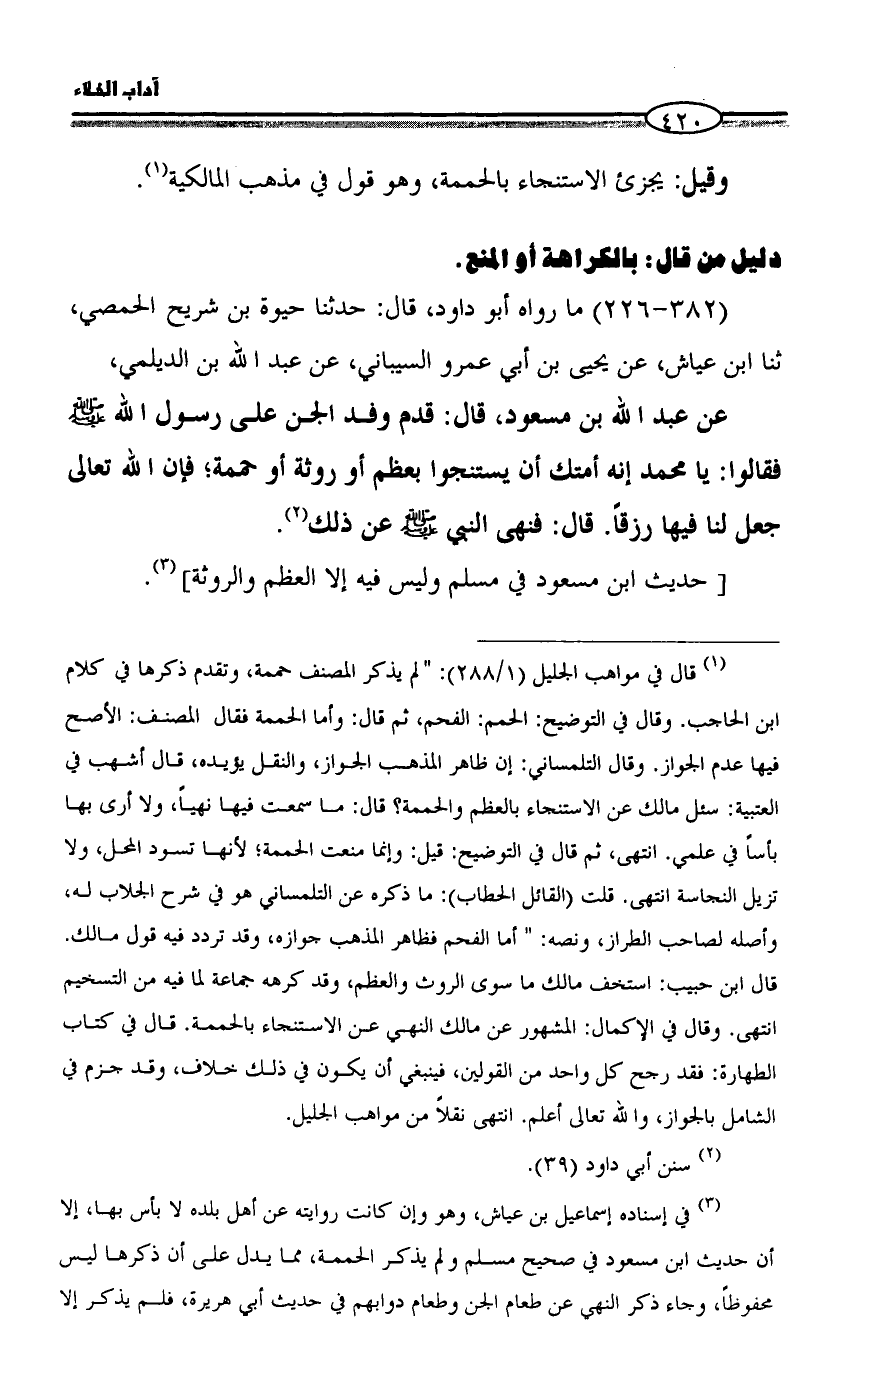 آداب الخلاء
٤٢٠
وقيل: يجزئ الاستنجاء بالحممة، وهو قول في مذهب المالكية(١).
دليل من قال: بالكراهة أو المنع.
(٣٨٢-٢٢٦) ما رواه أبو داود، قال: حدثنا حيوة بن شريح الحمصي،
ثنا ابن عياش، عن يحيى بن أبي عمرو السيباني، عن عبد الله بن الديلمي،
عن عبد الله بن مسعود، قال: قدم وفد الجن على رسول الله ﷺ
فقالوا: يا محمد إنه أمتك أن يستنجوا بعظم أو روثة أو حممة؛ فإن الله تعالى
جعل لنا فيها رزقاً. قال: فنهى النبي ﷺ عن ذلك(٢).
[ حديث ابن مسعود في مسلم وليس فيه إلا العظم والروثة] (٣).
(١) قال في مواهب الجليل (٢٨٨/١): "لم يذكر المصنف حممة، وتقدم ذكرها في كلام
ابن الحاجب. وقال في التوضيح: الحمم: الفحم، ثم قال: وأما الحممة فقال المصنف: الأصح
فيها عدم الجواز. وقال التلمساني: إن ظاهر المذهب الجواز، والنقل يؤيده، قال أشهب في
العتبية: سئل مالك عن الاستنجاء بالعظم والحممة؟ قال: ما سمعت فيها نهياً، ولا أرى بها
بأساً في علمي. انتهى، ثم قال في التوضيح: قيل: وإنما منعت الحممة؛ لأنها تسود المحل، ولا
تزيل النجاسة انتهى. قلت (القائل الحطاب): ما ذكره عن التلمساني هو في شرح الجلاب له،
وأصله لصاحب الطراز، ونصه: " أما الفحم فظاهر المذهب جوازه، وقد تردد فيه قول مالك.
قال ابن حبيب: استخف مالك ما سوى الروث والعظم، وقد كرهه جماعة لما فيه من التسخيم
انتهى. وقال في الإكمال: المشهور عن مالك النهي عن الاستنجاء بالحممة. قال في كتاب
الطهارة: فقد رجح كل واحد من القولين، فينبغي أن يكون في ذلك خلاف، وقد جزم في
الشامل بالجواز، والله تعالى أعلم. انتهى نقلاً من مواهب الجليل.
(٢) سنن أبي داود (٣٩).
(٣) في إسناده إسماعيل بن عياش، وهو وإن كانت روايته عن أهل بلده لا بأس بها، إلا
أن حديث ابن مسعود في صحيح مسلم ولم يذكر الحممة، مما يدل على أن ذكرها ليس
محفوظاً، وجاء ذكر النهي عن طعام الجن وطعام دوابهم في حديث أبي هريرة، فلم يذكر إلا